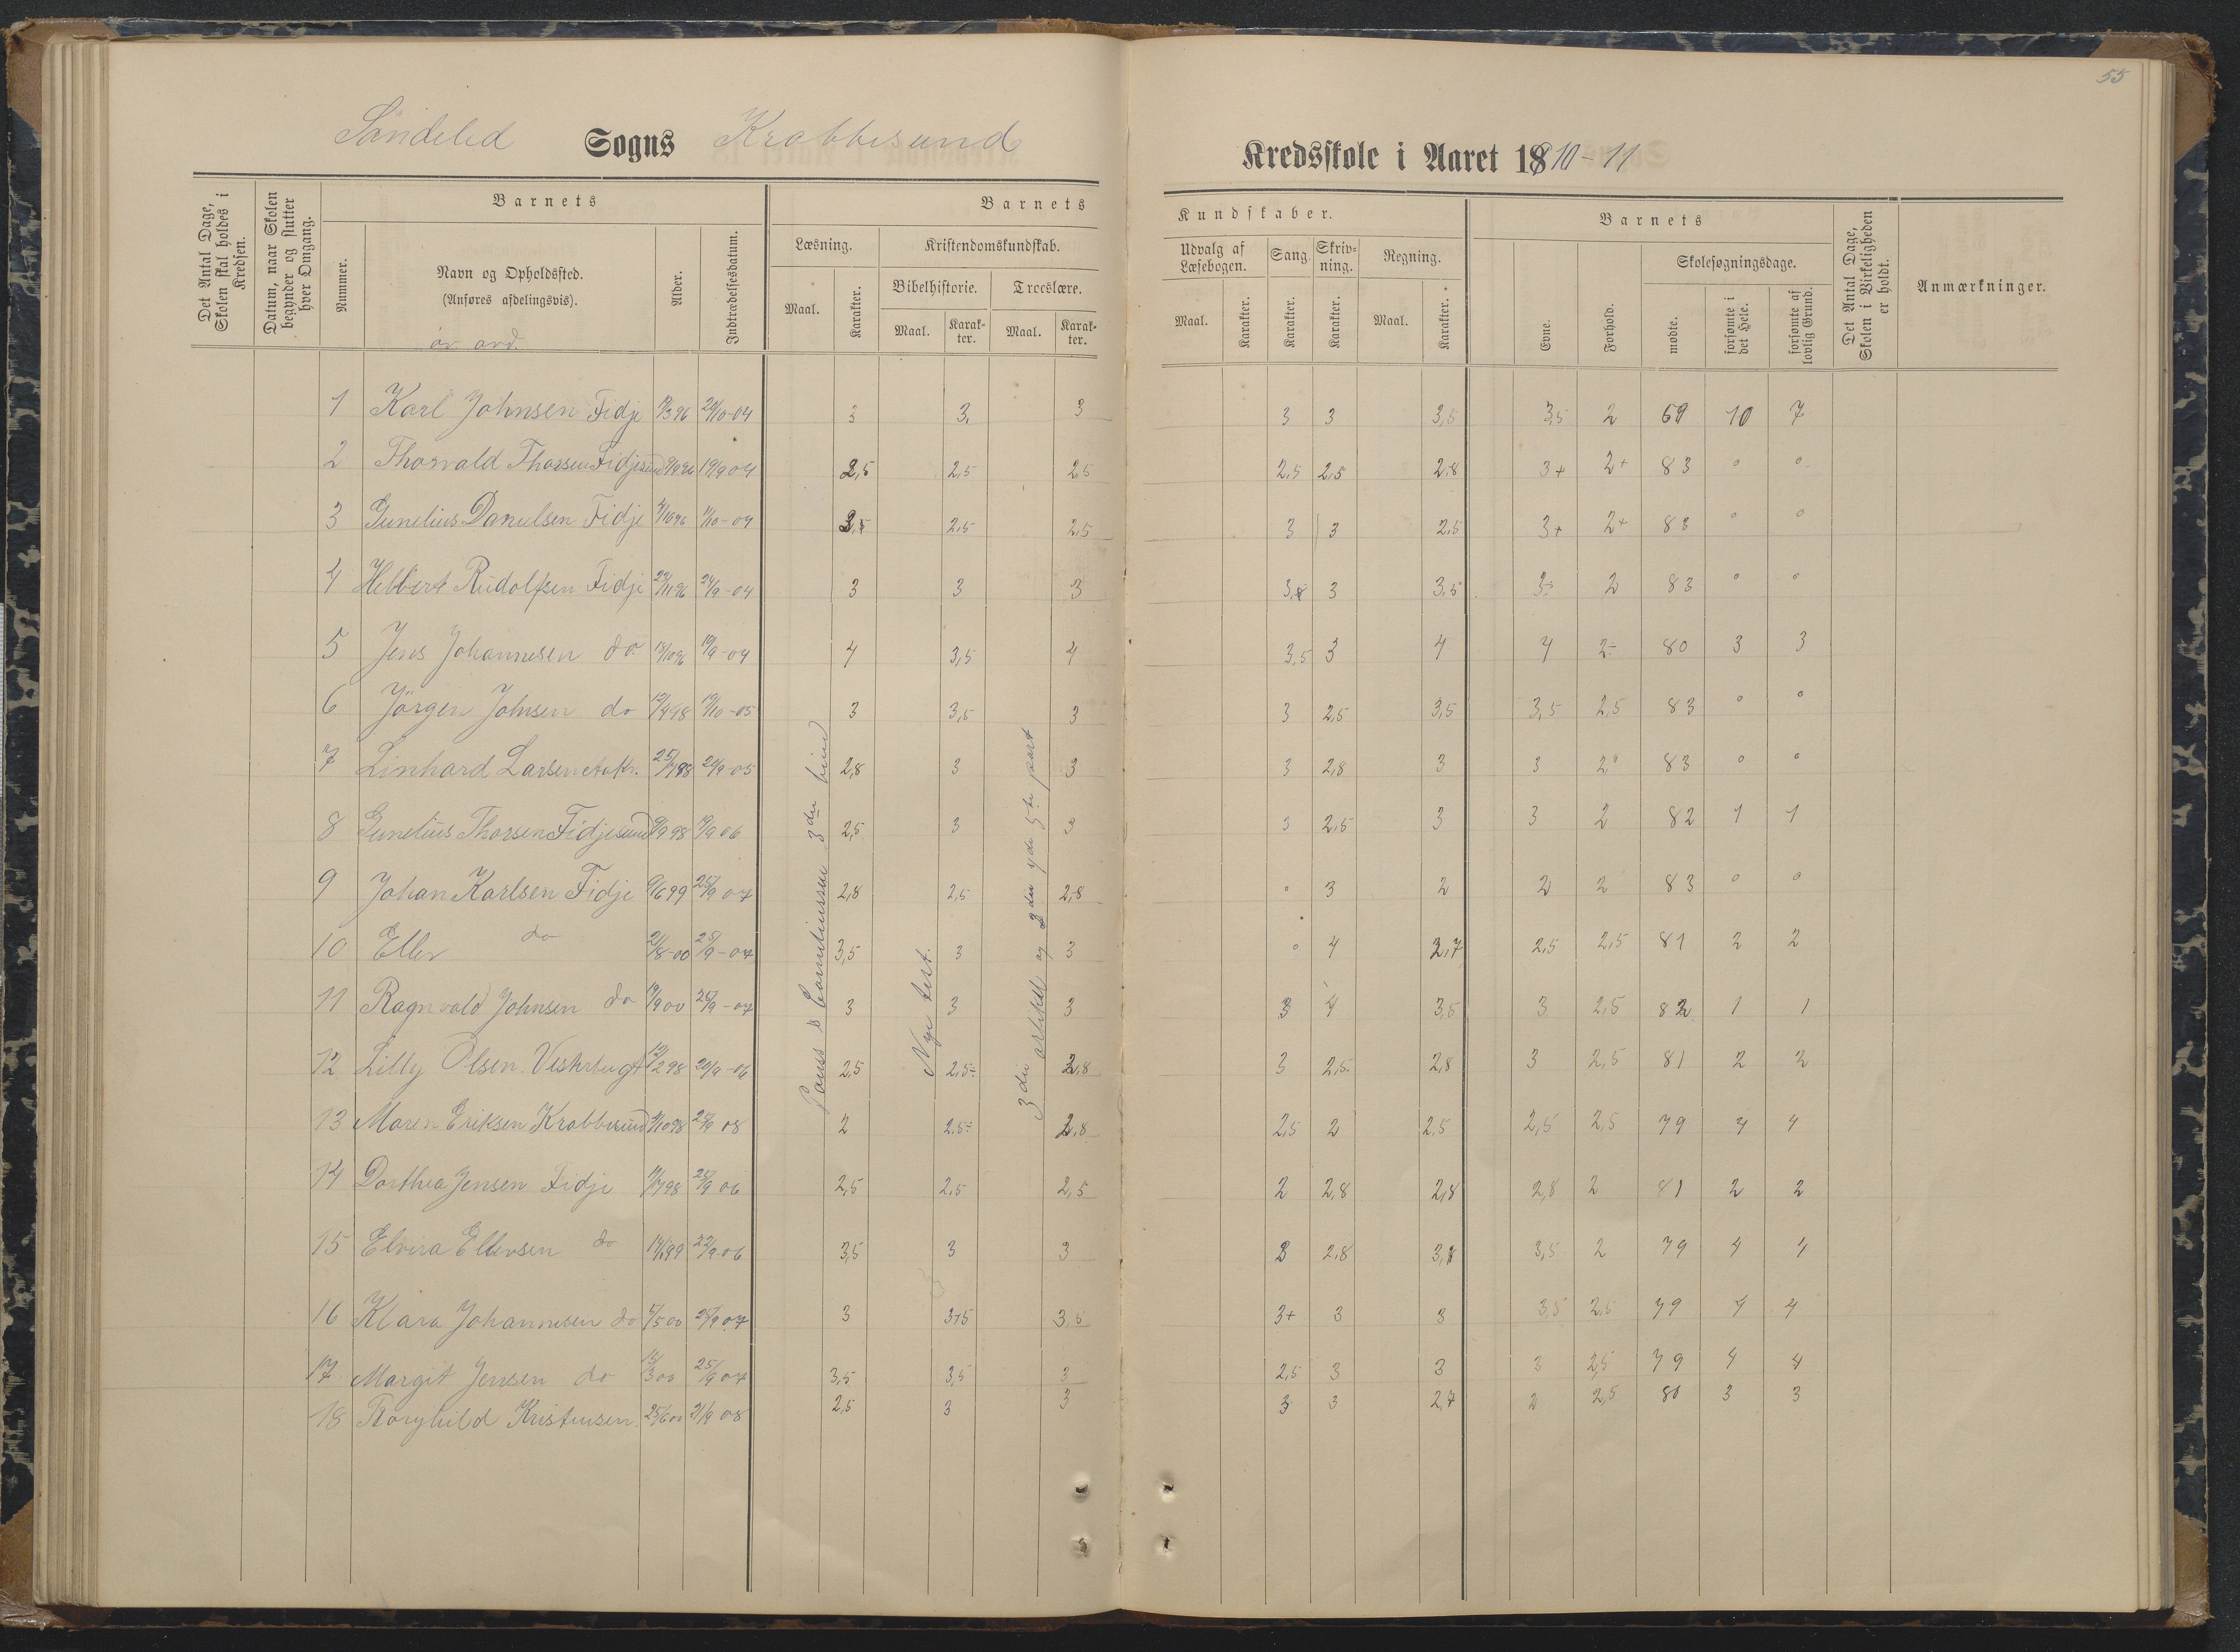 55
Søndeled Sogns Krabbesund Kredsskole i Aaret 1910-11
Det Antal Dage, Skolen skal holdes i Kredsen.
Datum, naar Skolen begynder og slutter hver Omgang.
Barnets
Nummer.
Navn og Opholdssted.
(Anføres afdelingsvis).
Alder.
Indtrædelsesdatum.
Barnets Kundskaber.
Læsning.
Maal.
Karakter.
Kristendomskundskab.
Bibelhistorie.
Maal.
Karakter.
Troeslære.
Maal.
Karakter.
Udvalg af Læsebogen.
Maal.
Karakter.
Sang.
Karakter.
Skrivning.
Karakter.
Regning.
Maal.
Karakter.
Barnets
Evne.
Forhold.
Skolesøgningsdage.
mødte.
forsømte i det Hele.
forsømte af lovlig Grund.
Det Antal Dage, Skolen i Virkeligheden er holdt.
Anmærkninger.
1 Karl Johnsen Fidje 24/10-04 3 3, 3 3 3 3,5 3,5 2 69 10 7
2 Thorvald Thorsen Fidjesund 19/9 04 2,5 2,5 2,5 2,5 2,5 2,8 3+ 2+ 83 0 0
3 Gunelius Danielsen Fidje 2,5 2,5 3 3 2,5 3+ 2+ 83 0 0
4 Hebbert Rudolfsen Fidje 23/11 96 24/9-04 3 3 3 3 3,5 2 83 0 0
5 Jens Johannesen do 19/9-04 4 3,5 4 3,5 3 4 4 2- 80 3 3
6 Jörgen Johnsen do 3 3,5 3 3 2,5 3,5 3,5 2,5 83 0 0
7 Linhard Larsen 2,8 3 3 3 2,8 3 3 83 0 0
8 Gunelius Thorsen Fidjesund 2,5 3 3 3 2,5 3 3 2 82 1 1
9 Johan Karlsen Fidje 9/6 99 25/9 07 2,8 2,5 2,8 0 3 2 2 2 83 0 0
10 Ellev do 21/8-00 25/9-07 3,5 3 3 0 4 2,7 2,5 2,5 81 2 2
11 Ragnvald Johnsen do 25/9-07 3 3 3 3 4 3,5 3 2,5 82 1 1
12 Lilly Olsen Vesterbugt 2,5 2,5- 2,8 3 2,5 2,8 3 2,5 81 2 2
13 Maren Eriksen Krabbesund 2 2,5- 2,8 2,5 2 2,5 2,5 2,5 79 4 4
14 Dorthea Jensen Fidje 25/9 06 2,5 2,5 2,5 2 2,8 2,8 2,8 2 81 2 2
15 Elvira Ellevsen do 22/9-06 3,5 3 3 2,8 3,5 2 79 4 4
16 Klara Johannesen do 5/5 00 25/9 07 3 3,5 3+ 3 3 3,5 2,5 79 4 4
17 Margit Jensen do 25/9 07 3,5 3,5 3 2,5 3 3 3 2,5 79 4 4
18 Thorghild Kristensen 25/6 00 21/9 08 2,5 3 3 3 3 2,7 2 2,5 80 3 3
Pauss & Corneliussen 3die bind
Nye test.
3die artikel og 3die 4de 5te part